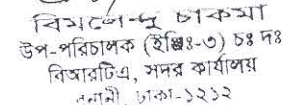 বিমলেন্দু চাকমা
উপ-পরিচালক (ইঞ্জিঃ-৩) চঃ দঃ
বিআরটিএ, সদর কার্যালয়
বনানী, ঢাকা-১২১২